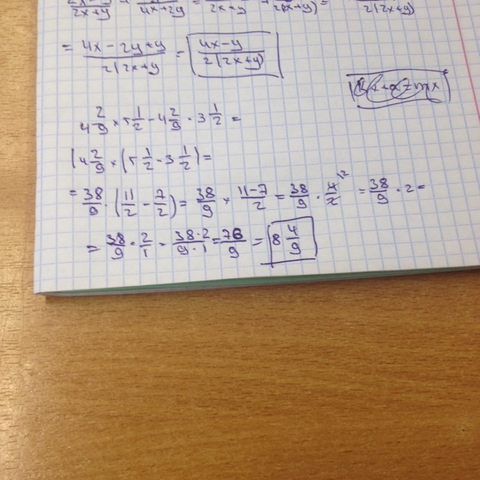 = 4x - 2y + y / 2(2x+y) = 4x-y / 2(2x+y)
4 2/9 × 5 1/2 - 4 2/9 · 3 1/2 =
(4 2/9 × (5 1/2 - 3 1/2) =
= 38/9 · (11/2 - 7/2) = 38/9 × 11-7/2 = 38/9 · 4/2 = 38/9 · 2 =
= 38/9 · 2/1 = 38·2/9·1 = 76/9 = 8 4/9